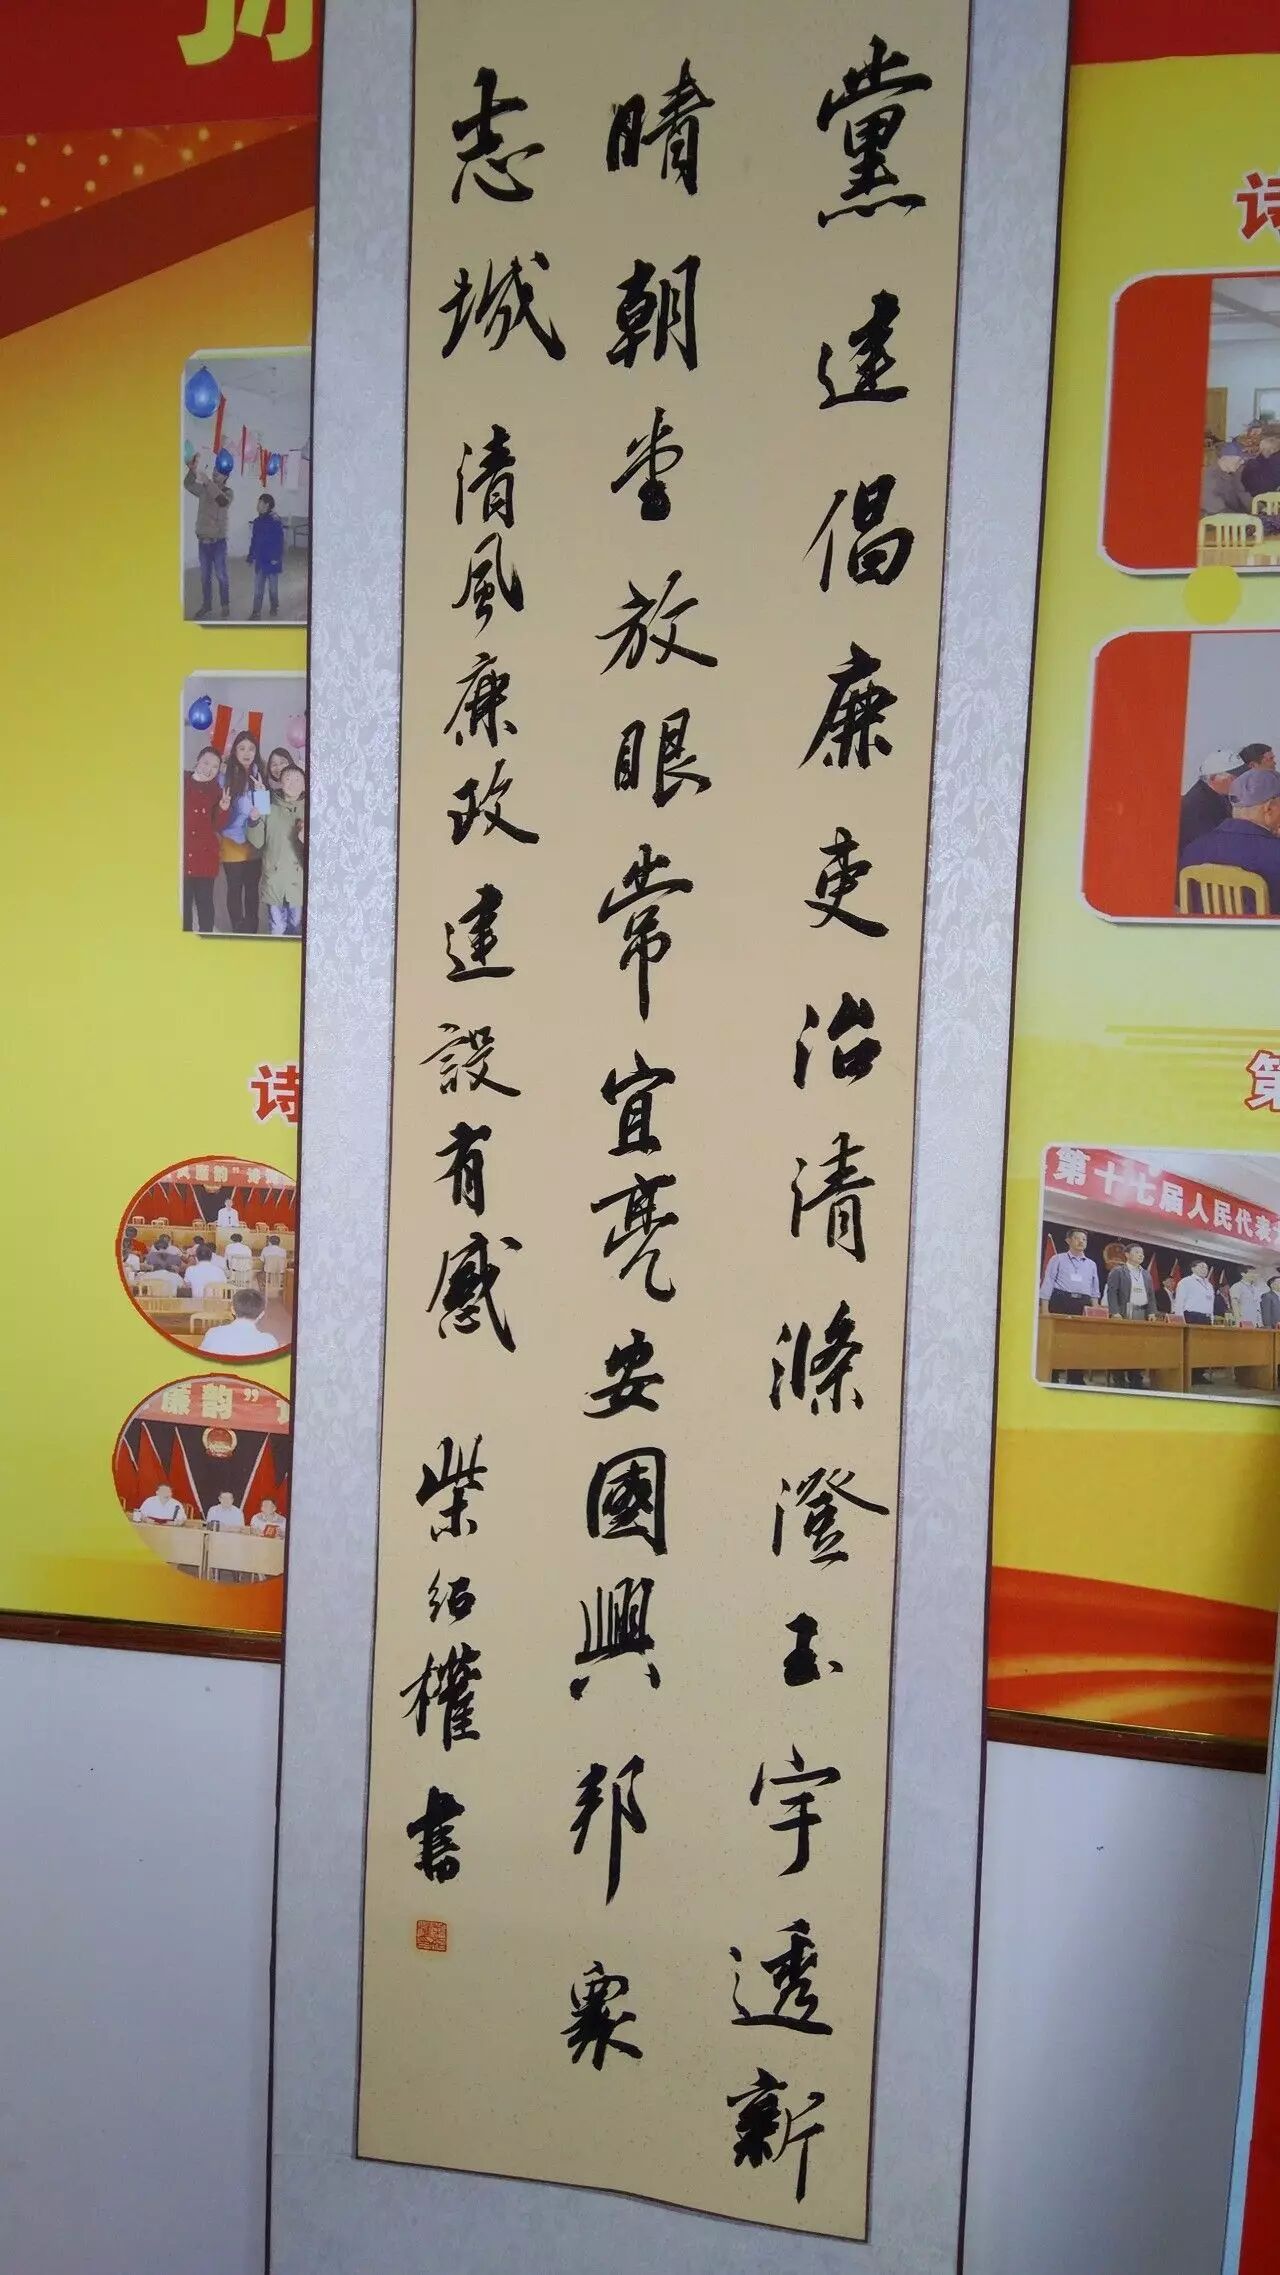 黨建倡廉吏治清滌澄玉宇透新
晴朝堂放眼常宜亮安國興邦眾
志城 清風廉政建設有感 柴紹權書
诗
诗
第
第十七届人民代表
廉韵”